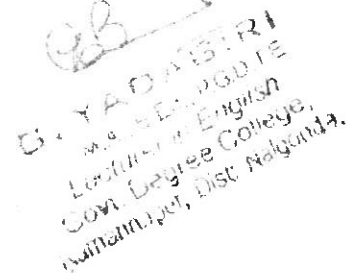 G. YADAGIRI
M.A., B.Ed., PGDTE
Lecturer in English
Govt. Degree College,
Dist. Nalgonda.